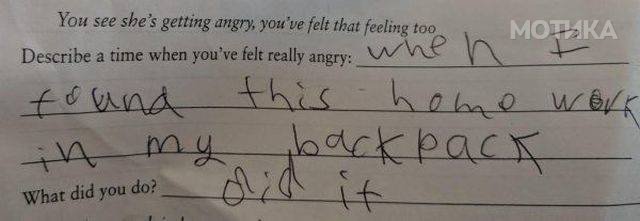 You see she's getting angry, you've felt that feeling too
МОТИКА
Describe a time when you've felt really angry: when I
found this homo work
in my backpack
What did you do? did it